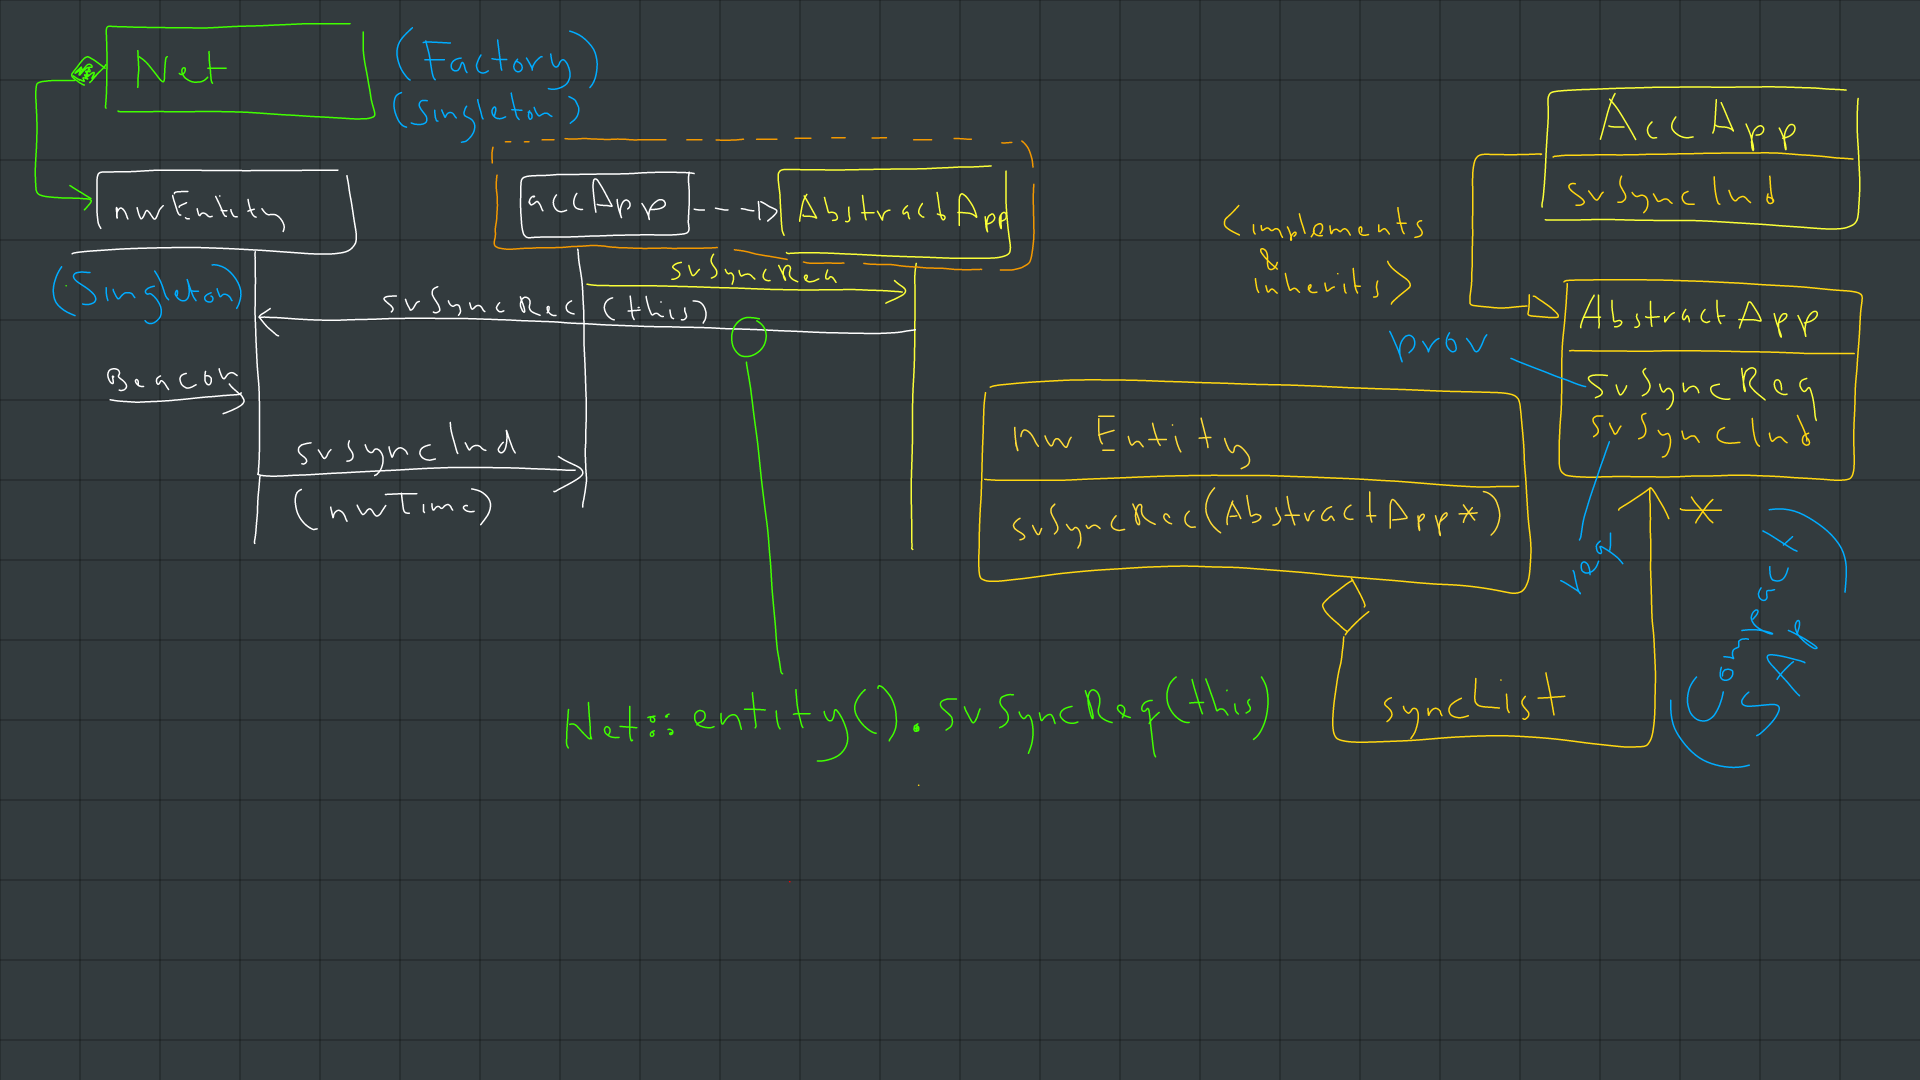 Net
(Factory)
(Singleton)
nwEntity
(Singleton)
accApp
AbstractApp
svSyncReq
svSyncRec (this)
Beacon
svSyncInd
(nwTime)
Net::entity().svSyncReq(this)
AccApp
svSyncInd
<implements
&
inherits>
AbstractApp
svSyncReq
svSyncInd
prov
req
*
nwEntity
svSyncRec(AbstractApp*)
syncList